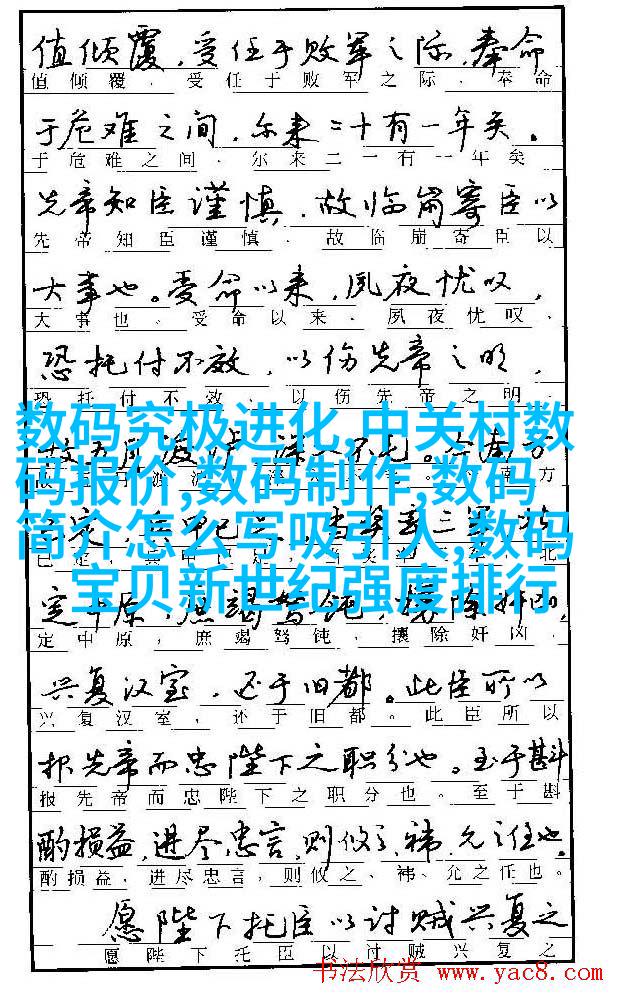 值倾覆，受任于败军之际，奉命
值倾覆，受任于败军之际，奉命
于危难之间，尔来二十有一年矣。
于危难之间，尔来二一有一年矣
先帝知臣谨慎，故临崩寄臣以
先帝知臣谨慎，故临崩寄臣以
大事也。受命以来，夙夜忧叹，
大事也。受命以来，夙夜忧叹，
恐托付不效，以伤先帝之明，
恐托付不效，以伤先帝之明，
数码究极进化,中关村数
码报价,数码制作,数码
简介怎么写吸引人,数码
宝贝新世纪强度排行
定中原，庶竭驽钝，攘除奸凶，
定中原，庶竭驽钝，攘除奸凶，
兴复汉室，还于旧都。此臣所以
兴复汉室，还于旧都。此臣所以
报先帝而忠陛下之职分也。至于斟
报先帝而忠陛下之职分也。至于斟
酌损益，进尽忠言，则攸之、祎、允之任也。
酌损益，进尽忠言，则攸之、祎、允之任也。
愿陛下托臣以讨贼兴复之
愿陛下托臣以讨贼兴复之
书法欣赏 www.yac8.com